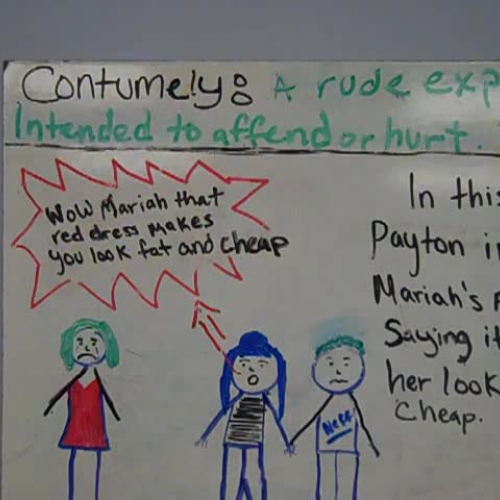 Contumely: A rude exp
Intended to affend or hurt.
Wow Mariah that
red dress makes
you look fat and cheap
In this
Payton in
Mariah's
Saying it
her look
Cheap.